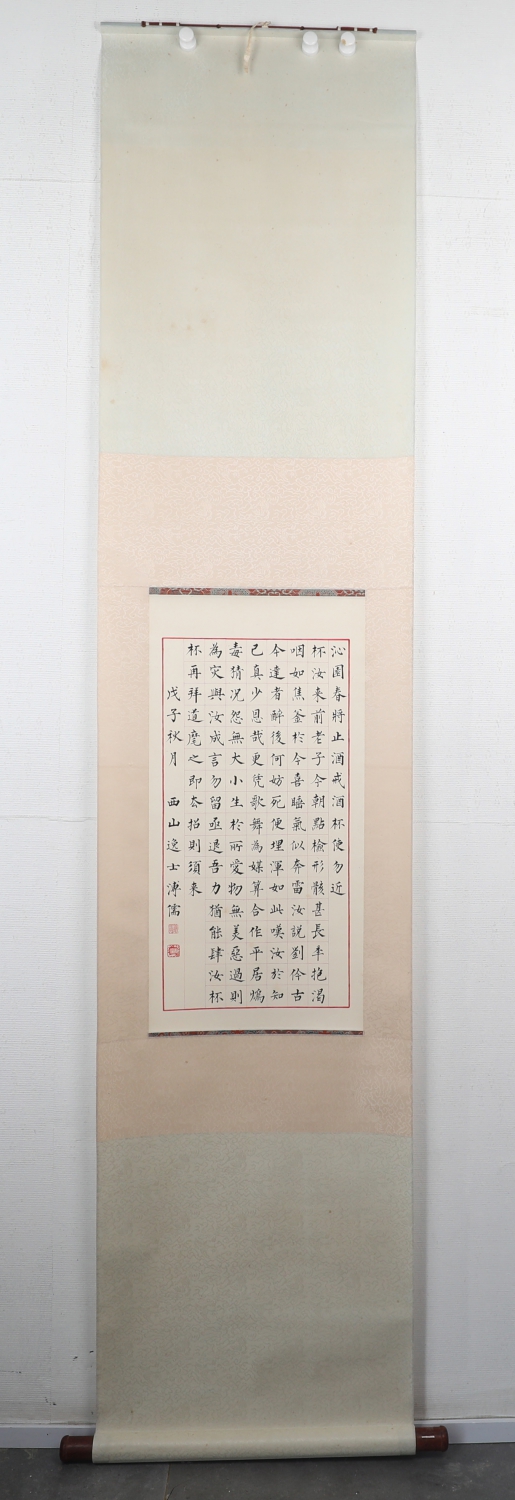 沁園春將止酒戒酒杯使勿近
杯汝来前老子今朝點檢形骸甚長年抱渴
咽如焦釜於今喜睡氣似奔雷汝說劉伶古
今達者醉後何妨死便埋渾如此嘆汝於知
己真少恩哉更凭歌舞為媒算合作平居鴆
毒猜况怨無大小生於所愛物無美惡過則
為灾與汝成言勿留亟退吾力猶能肆汝杯
杯再拜道麾之即去招則須来
戊子秋月 西山逸士溥儒